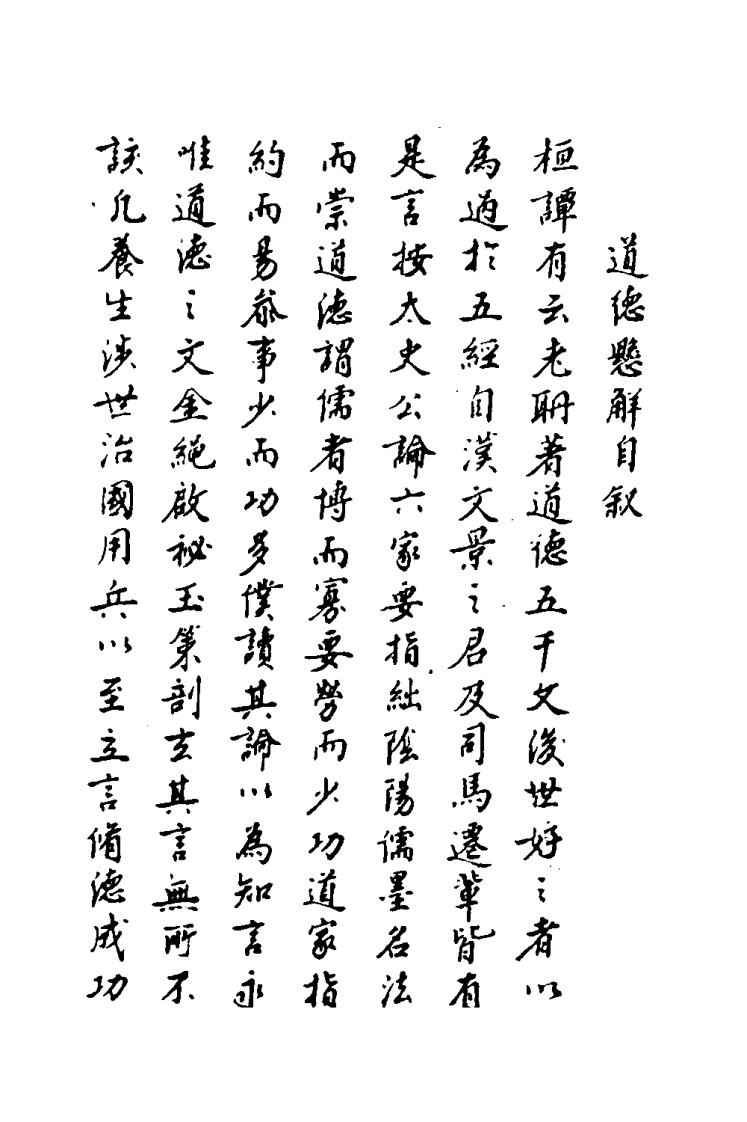 道德懸解自叙
桓譚有云老耼著道德五千文後世好之者以
為過於五經自漢文景之君及司馬遷輩皆有
是言按太史公論六家要指絀陰陽儒墨名法
而崇道德謂儒者博而寡要勞而少功道家指
約而易操事少而功多僕讀其論以為知言永
唯道德之文金繩啟祕玉策剖玄其言無所不
該凡養生涉世治國用兵以至立言脩德成功